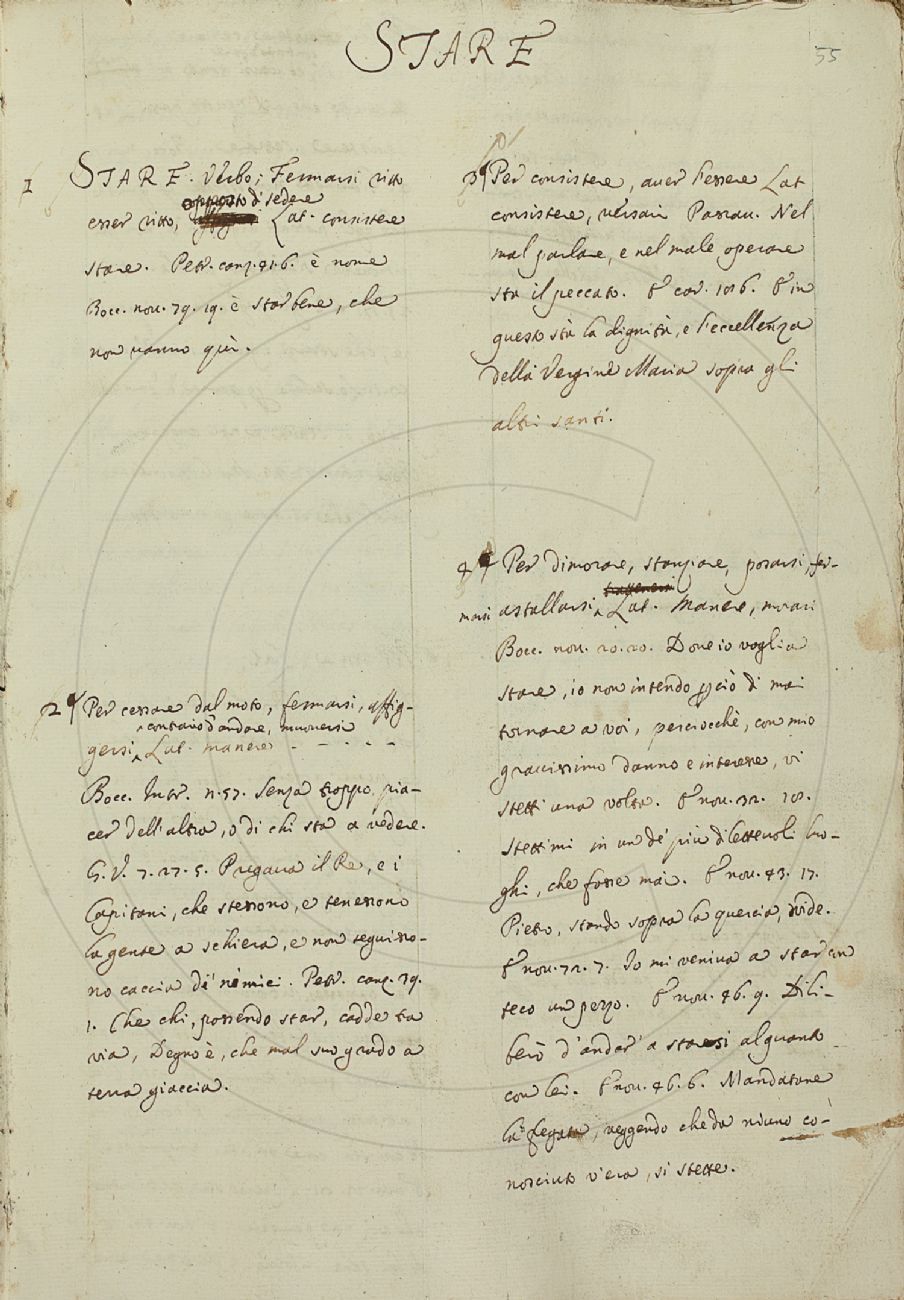 STARE
55
1 STARE. Verbo; Fermarsi ritto
opposto di sedere
esser ritto, Lat. consistere
stare. Petr. canz. 41. 6. è nome
Bocc. nov. 79. 19. è star bene, che
non vanno qui.
2 Per cessare dal moto, fermarsi, affig-
contrario d'andare, muoversi
gersi Lat. manere - - - - -
Bocc. Intr. n. 57. Senza troppo pia-
cer dell'altra, o di chi sta a vedere.
G. V. 7. 27. 5. Pregava il Re, e i
Capitani, che stessono, e tenessono
la gente a schiera, e non seguisso-
no caccia de' nemici. Petr. canz. 39.
1. Che chi, possendo star, cadde tra
via, Degno è, che mal suo grado a
terra giaccia.
3 Per consistere, aver l'essere Lat
consistere, versari Passav. Nel
mal parlare, e nel male operare
sta il peccato. E car. 106. E in
questo stà la dignità, e l'eccellenza
della Vergine Maria sopra gli
altri santi.
4 Per dimorare, stanziare, posarsi, fer-
marsi astallarsi trattenersi Lat. Manere, morari
Bocc. nov. 20. 20. Dove io voglia
stare, io non intendo perciò di mai
tornare a voi, perciocchè, con mio
gravissimo danno e interesse, vi
stetti una volta. E nov. 32. 20.
Stettimi in un de' più dilettevoli luo-
ghi, che fosse mai. E nov. 43. 17.
Pietro, stando sopra la quercia, vide.
E nov. 72. 7. Io mi veniva a star con
teco un pezzo. E nov. 46. 9. Dili-
berò d'andar' a starsi alquanto
con lei. E nov. 46. 6. Mandatane
la fegata, veggendo che da niuno co-
nosciuto v'era, si stette.